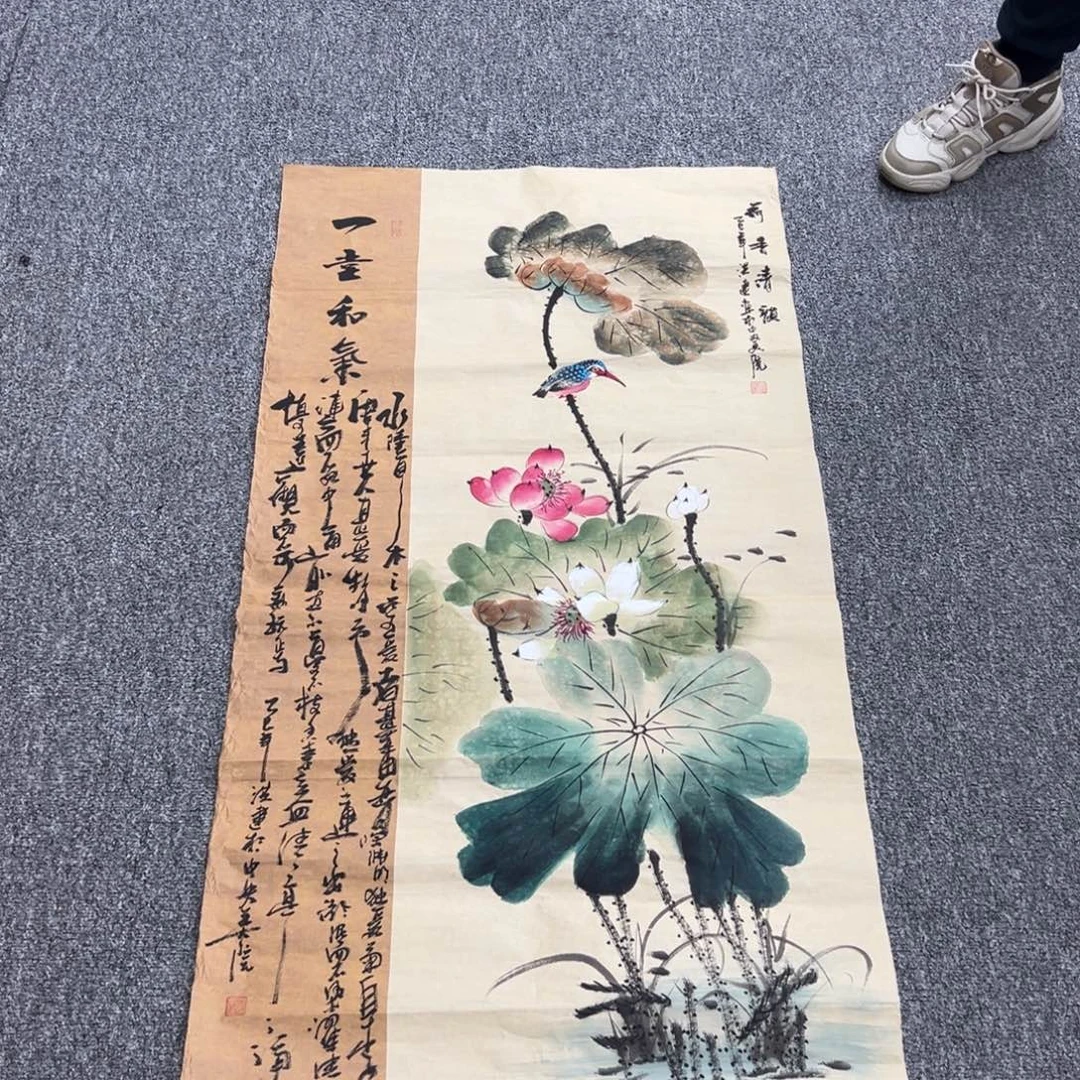 荷香清韻
乙巳年洪建寫於中央美院
一堂和氣
水陸草木之花可愛者甚蕃晉陶淵明獨愛菊自李
唐來世人甚愛牡丹予獨愛蓮之出淤泥而不染濯清
漣而不妖中通外直不蔓不枝香遠益清亭亭淨
植可遠觀而不可褻玩焉
乙巳年洪建於中央美院